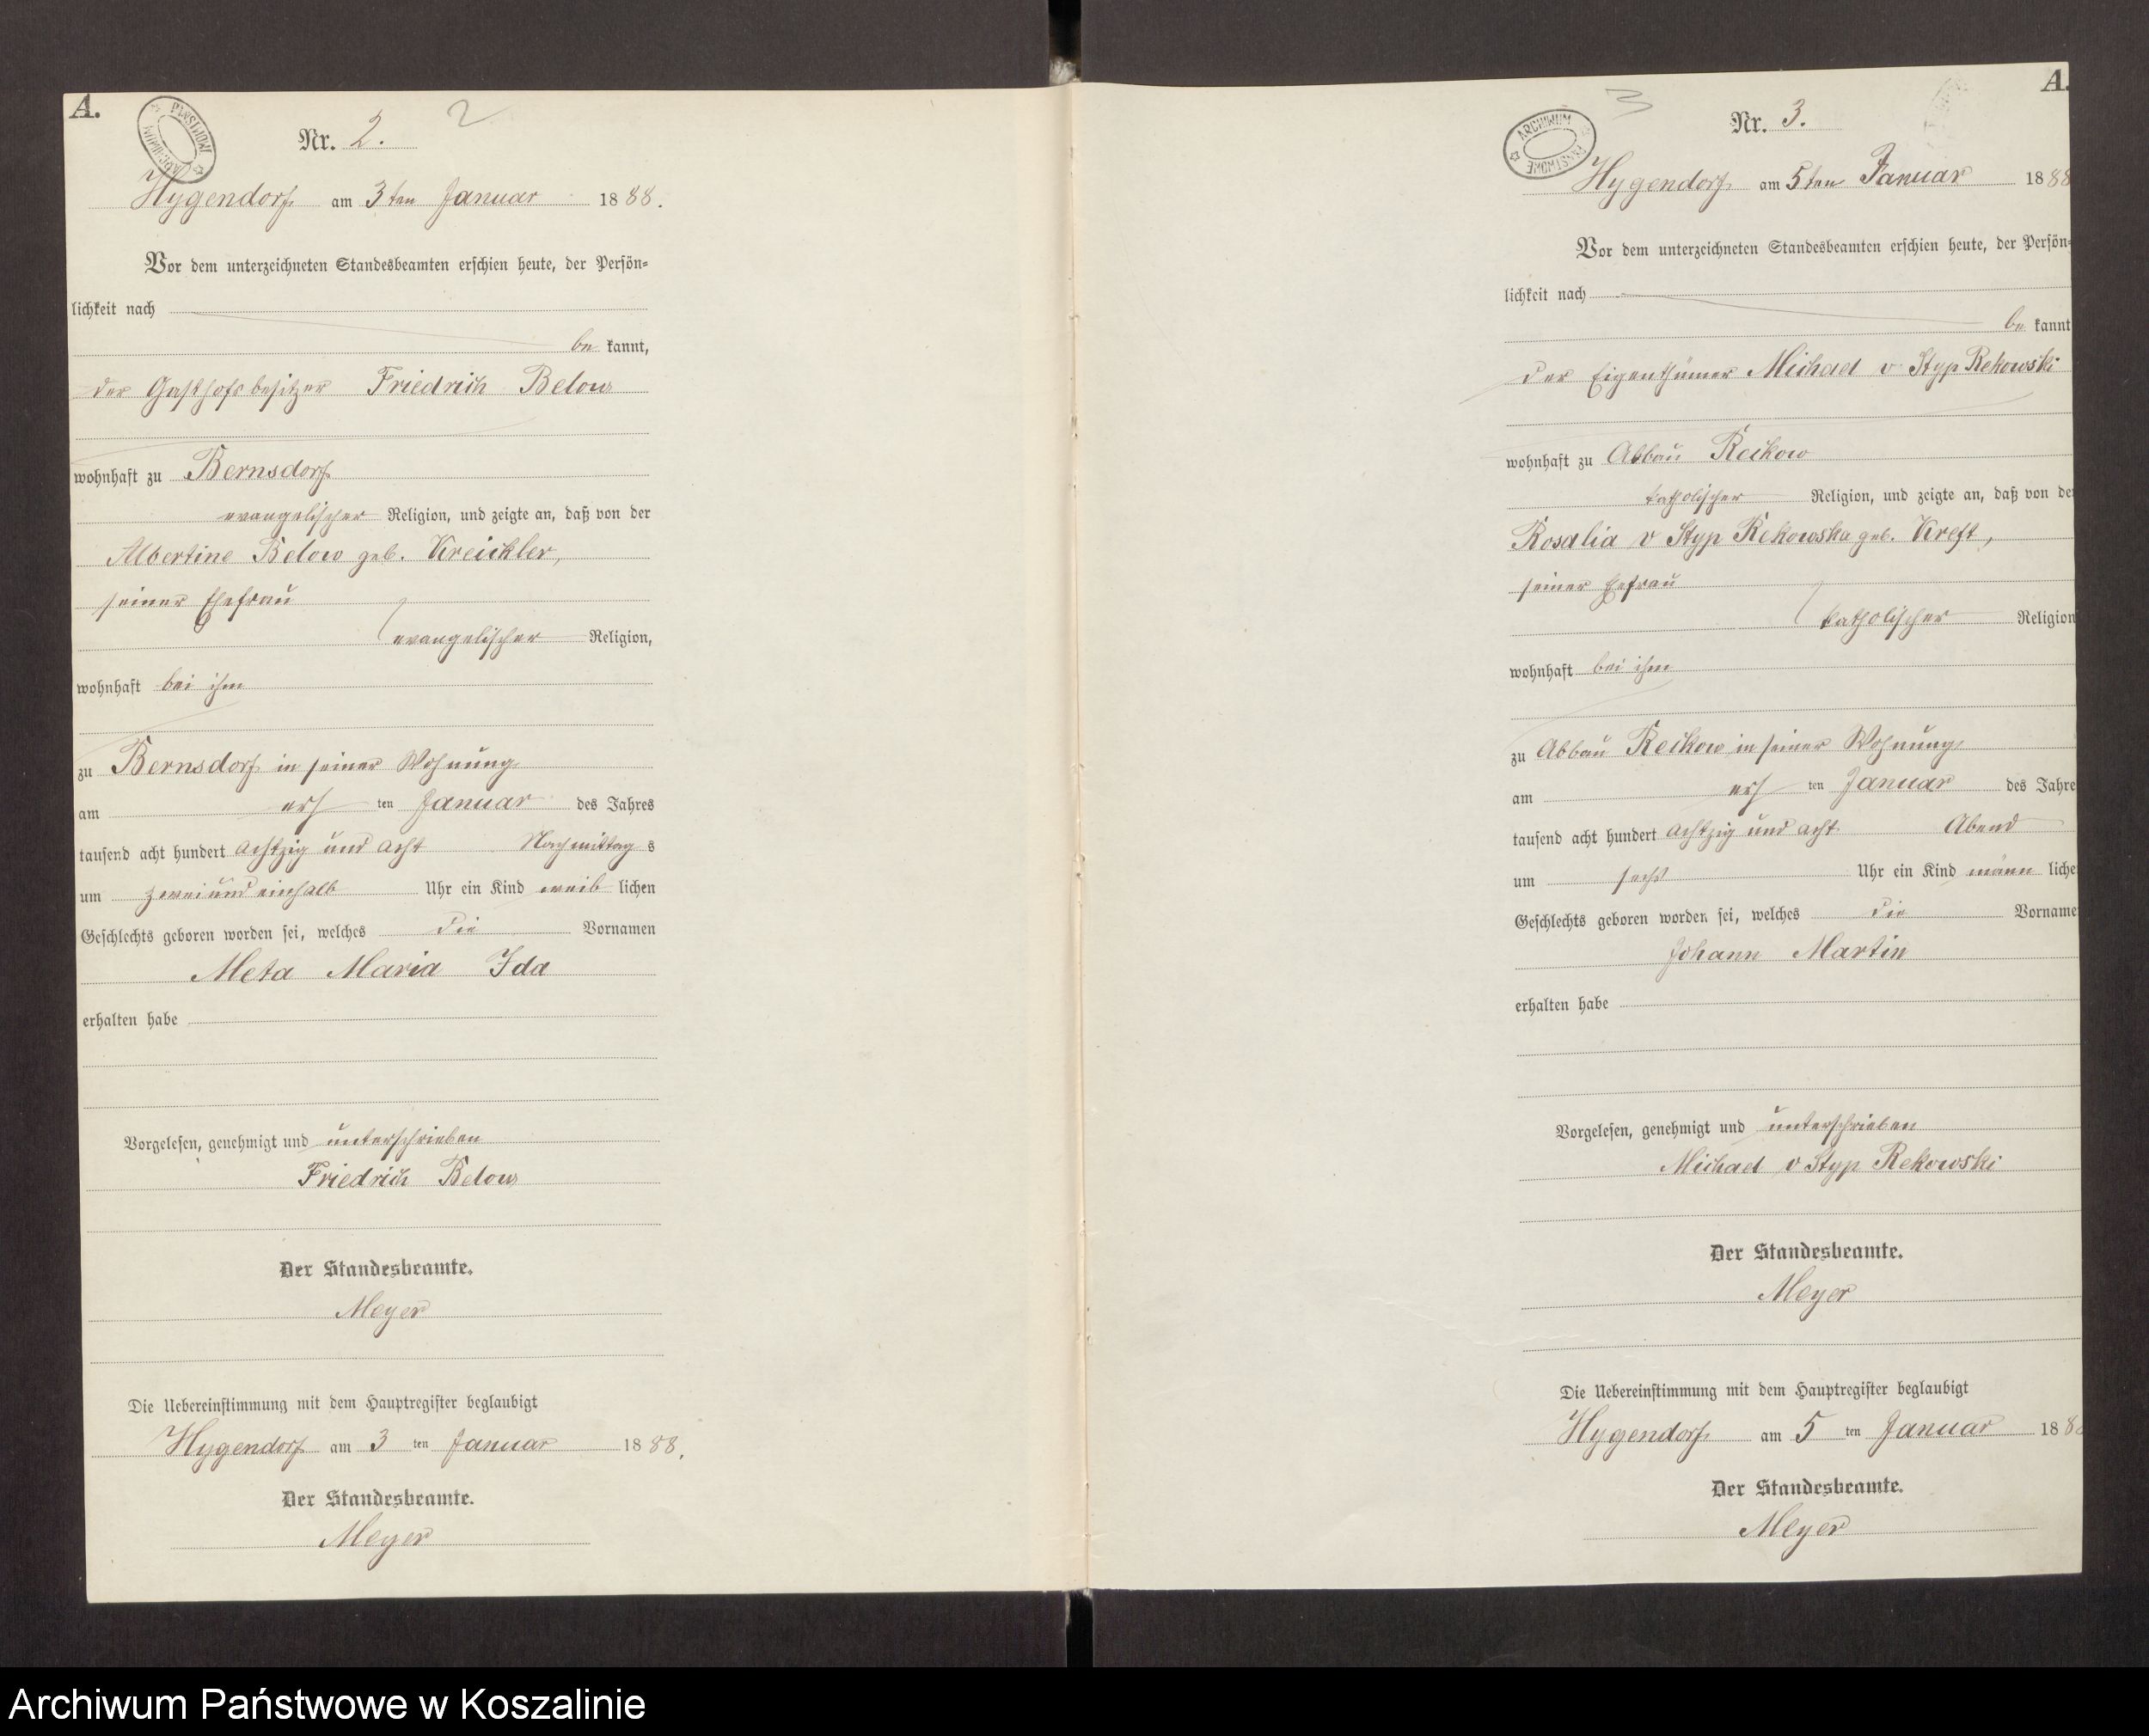 A.
ARCHIWUM PAŃSTWOWE
Nr. 2.
2
Hygendorf am 3ten Januar 1888.
Vor dem unterzeichneten Standesbeamten erschien heute, der Persön-
lichkeit nach
be kannt,
der Gasthofsbesitzer Friedrich Below
wohnhaft zu Bernsdorf
evangelischer Religion, und zeigte an, daß von der
Albertine Below geb. Kreickler,
seiner Ehefrau
evangelischer Religion,
wohnhaft bei ihm
zu Bernsdorf in seiner Wohnung
am ersten Januar des Jahres
tausend acht hundert achtzig und acht Nachmittag s
um zwei und einhalb Uhr ein Kind weib lichen
Geschlechts geboren worden sei, welches die Vornamen
Meta Maria Ida
erhalten habe
Vorgelesen, genehmigt und unterschrieben
Friedrich Below
Der Standesbeamte.
Meyer
Die Uebereinstimmung mit dem Hauptregister beglaubigt
Hygendorf am 3 ten Januar 1888.
Der Standesbeamte.
Meyer
A.
ARCHIWUM PAŃSTWOWE
3
Nr. 3.
Hygendorf am 5ten Januar 1888
Vor dem unterzeichneten Standesbeamten erschien heute, der Persön-
lichkeit nach
be kannt
der Eigenthümer Michael v Styp Rekowski
wohnhaft zu Abbau Reckow
katholischer Religion, und zeigte an, daß von der
Rosalia v Styp Rekowska geb. Kreft,
seiner Ehefrau
katholischer Religion
wohnhaft bei ihm
zu Abbau Reckow in seiner Wohnung
am ersten Januar des Jahre
tausend acht hundert achtzig und acht Abend
um sechs Uhr ein Kind männ liche
Geschlechts geboren worden sei, welches die Vorname
Johann Martin
erhalten habe
Vorgelesen, genehmigt und unterschrieben
Michael v Styp Rekowski
Der Standesbeamte.
Meyer
Die Uebereinstimmung mit dem Hauptregister beglaubigt
Hygendorf am 5 ten Januar 188
Der Standesbeamte.
Meyer
Archiwum Państwowe w Koszalinie